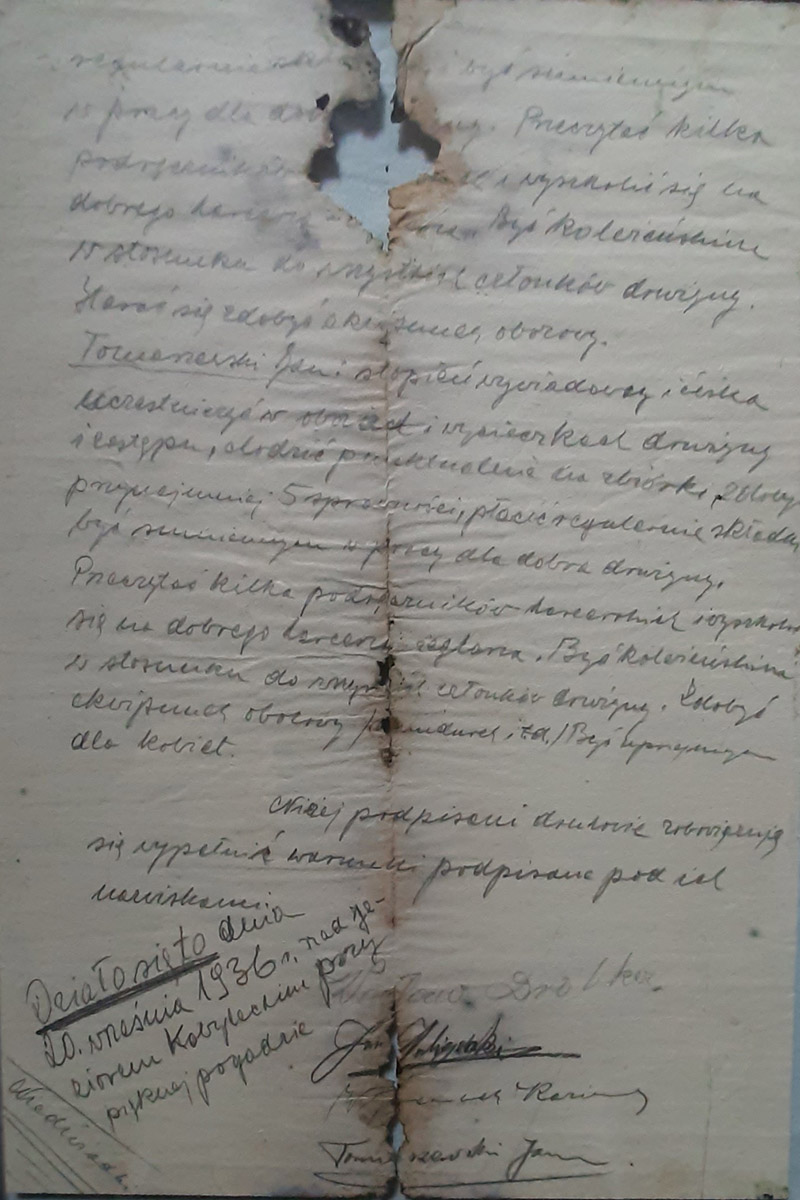 regularnie i być sumiennym
w pracy dla Przeczytać kilka
i wyszkolić się na
dobrego Być koleżeńskim
w stosunku do wszystkich członków drużyny.
się zdobyć obozowy.
Tomaszewski Jan i stopień wywiadowcy i ćwika
uczestniczyć w obozach i wycieczkach drużyny
i zastępu, chodzić punktualnie na zbiórki, zdobyć
przynajmniej 5 sprawności, płacić regularnie składki
być sumiennym w pracy dla dobra drużyny.
Przeczytać kilka podręczników harcerskich i wyszkolić
się na dobrego harcerza żeglarza. Być koleżeńskim
w stosunku do wszystkich członków drużyny. Zdobyć
ekwipunek obozowy / itd./ Być uprzejmym
dla kobiet.
Niżej podpisani druhowie zobowiązują
się wypełnić warunki podpisane pod ich
nazwiskami.
Działo się to dnia
20. września 1936 r. nad je-
ziorem Kobyleckim przy
pięknej pogodzie
Jan
Tomaszewski Jan.